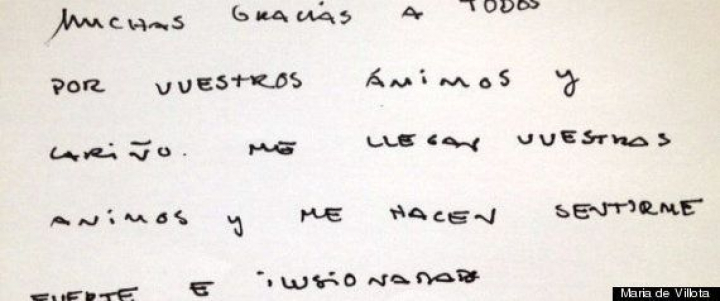 MUCHAS GRACIAS A TODOS
POR VUESTROS ÁNIMOS Y
CARIÑO. ME LLEGAN VUESTROS
ANIMOS Y ME HACEN SENTIRME
FUERTE E ILUSIONADA
Maria de Villota